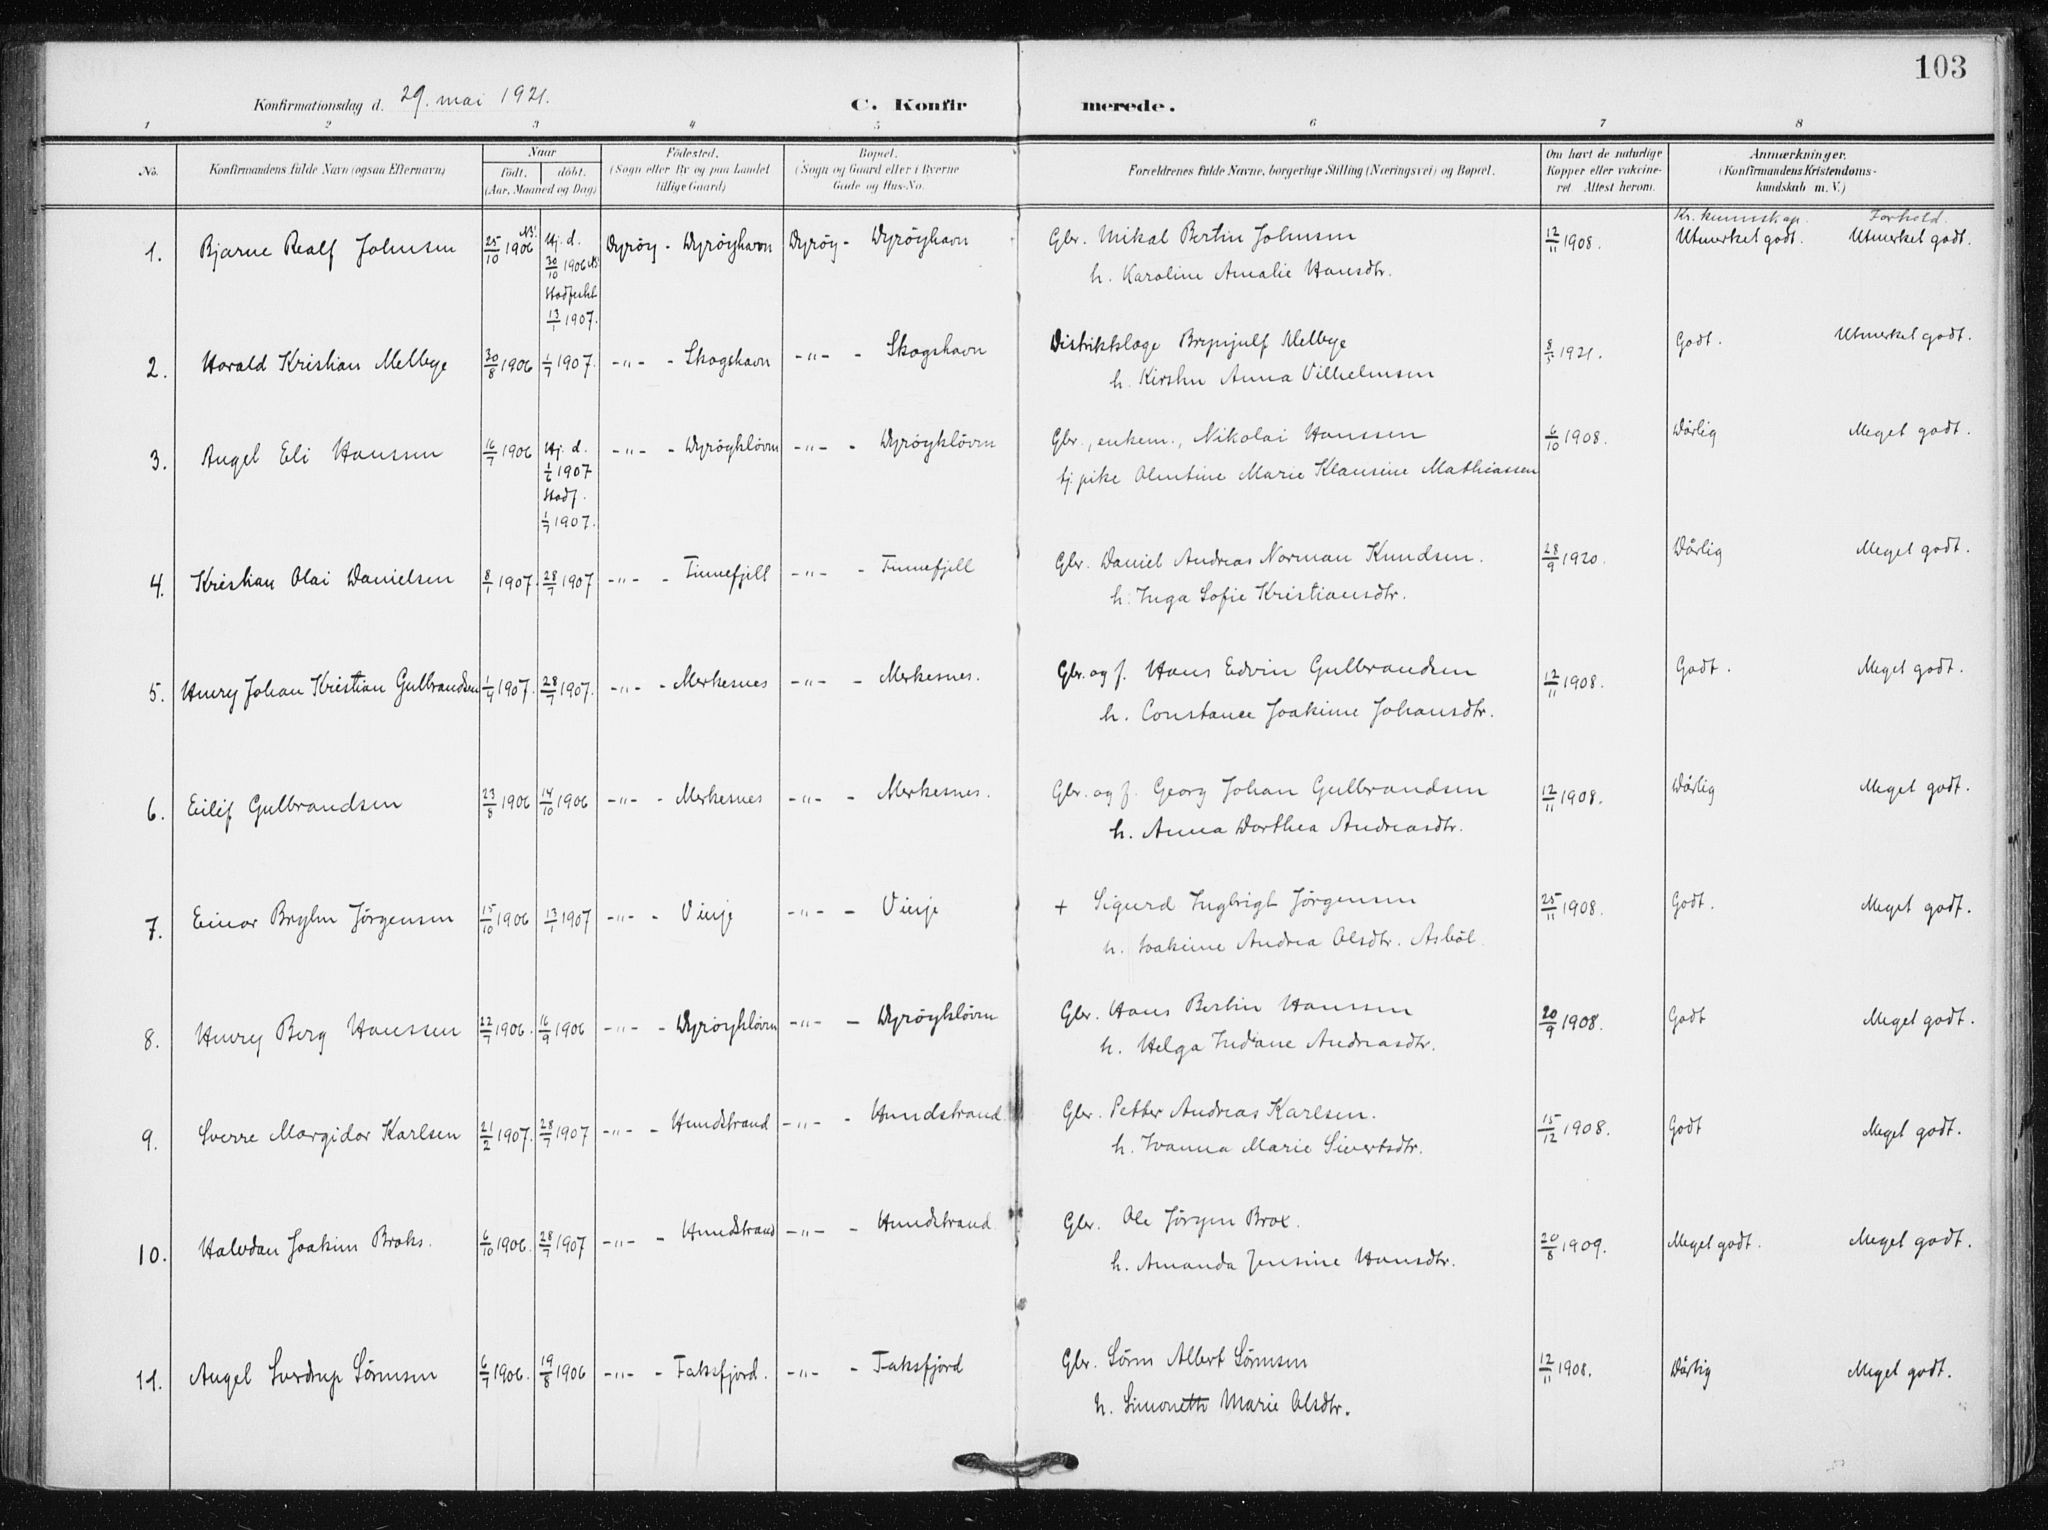 103
Konfirmationsdag d. 29. mai 1921.
C. Konfirmerede.
1 2 3 4 5 6 7 8
No.
Konfirmandens fulde Navn (ogsaa Efternavn)
Naar
født. døbt.
(Aar, Maaned og Dag)
Fødested.
(Sogn eller By og paa Landet
tillige Gaard)
Bopæl.
(Sogn og Gaard eller i Byerne
Gade og Hus-No.
Forældrenes fulde Navne, borgerlige Stilling (Næringsvei) og Bopæl.
Om havt de naturlige
Kopper eller vakcine-
ret Attest herom.
Anmærkninger.
(Konfirmandens Kristendoms-
kundskab m. V.)
Kr. kunnskap. Forhold.
1. Bjarne Realf Johnsen 25/10 1906 Hj. d. Dyrøy - Dyrøyhavn Dyrøy - Dyrøyhavn Gbr. Mikal Bertin Johnsen 12/11 1908. Utmerket godt. Utmerket godt.
30/10 1906 h. Karoline Amalie Hansdtr.
Stadfestet
13/1 1907.
2. Harald Kristian Melbye 30/8 1906 1/7 1907. -"- - Skogshavn -"- - Skogshavn Distriktslæge Brynjulf Melbye 8/5 1921. Godt. Utmerket godt.
h. Kirsten Anna Vilhelmsen
3. Angel Eli Hanssen 16/7 1906 Hj. d. -"- - Dyrøykløvn -"- - Dyrøykløvn Gbr., enkem., Nikolai Hanssen 6/10 1908. Dårlig Meget godt.
1907 tj. pike Olentine Marie Klausine Mathiassen
Stadf.
1/7 1907.
4. Kristian Olai Danielsen 8/1 1907. 28/7 1907 -"- - Finnefjell -"- - Finnefjell Gbr. Daniel Andreas Norman Knudsen. 28/9 1920. Dårlig Meget godt.
h. Inga Sofie Kristiansdtr.
5. Henry Johan Kristian Gulbrandsen 1907. 28/7 1907. -"- - Merkesnes -"- - Merkesnes. Gbr. og f. Hans Edvin Gulbrandsen 12/11 1908. Godt. Meget godt.
h. Constance Joakime Johansdtr.
6. Eilif Gulbrandsen 23/8 1906 14/10 1906 -"- - Merkesnes -"- - Merkesnes. Gbr. og f. Georg Johan Gulbrandsen 12/11 1908. Dårlig Meget godt.
h. Anna Dorthea Andreasdtr.
7. Einar Jørgensen 15/10 1906 13/1 1907 -"- - Vinje -"- - Vinje + Sigurd Ingbrigt Jørgensen 25/11 1908. Godt. Meget godt.
h. Joakime Andrea Olsdtr.
8. Henry Berg Hanssen 22/7 1906. 16/9 1906 -"- - Dyrøykløvn -"- - Dyrøykløvn Gbr. Hans Bertin Hanssen 20/9 1908. Godt Meget godt.
h. Helga Indiane Andreasdtr.
9. Sverre Margidor Karlsen 21/2 1907. 28/7 1907 -"- - Hundstrand -"- - Hundstrand Gbr. Petter Andreas Karlsen. 15/12 1908. Godt Meget godt.
h. Ivanna Marie Sivertsdtr.
10. Halvdan Joakim Broks. 6/10 1906. 28/7 1907 -"- - Hundstrand -"- - Hundstrand. Gbr. Ole Jørgen Brox. 20/8 1909. Meget godt. Meget godt.
h. Amanda Jensine Hansdtr.
11. Angel Sverdrup Sørensen 6/7 1906. 19/8 1906 -"- - Faksfjord. -"- - Faksfjord Gbr. Søren Albert Sørensen 12/11 1908. Dårlig Meget godt.
h. Simonette Marie Olsdtr.